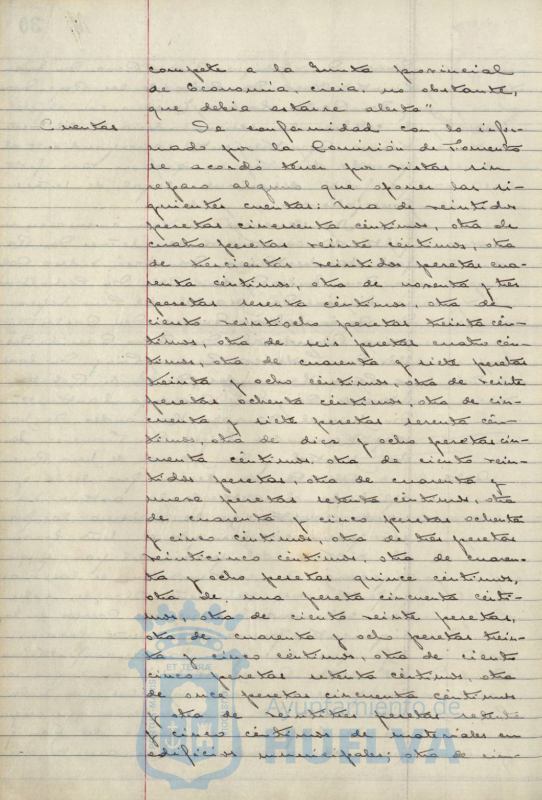 compete a la Junta provincial
de Economía, creía, no obstante,
que debía estarse alerta"
Cuentas De conformidad con lo infor-
mado por la Comisión de Fomento
se acordó tener por vistas sin
reparo alguno que oponer las si-
guientes cuentas: Una de veintidos
pesetas cincuenta céntimos, otra de
cuatro pesetas veinte céntimos, otra
de trescientas veintidos pesetas cua-
renta céntimos, otra de noventa y tres
pesetas sesenta céntimos, otra de
ciento veintiocho pesetas treinta cén-
timos, otra de seis pesetas cuatro cén-
timos, otra de cuarenta y siete pesetas
treinta y ocho céntimos, otra de veinte
pesetas ochenta céntimos, otra de cin-
cuenta y siete pesetas sesenta cén-
timos, otra de diez y ocho pesetas cin-
cuenta céntimos, otra de ciento vein-
tidos pesetas, otra de cuarenta y
nueve pesetas setenta céntimos, otra
de cuarenta y cinco pesetas ochenta
y cinco céntimos, otra de tres pesetas
veinticinco céntimos, otra de cuaren-
ta y ocho pesetas quince céntimos,
otra de una peseta cincuenta cénti-
mos, otra de ciento veinte pesetas,
otra de cuarenta y ocho pesetas trein-
ta y cinco céntimos, otra de ciento
cinco pesetas setenta céntimos, otra
de once pesetas cincuenta céntimos
y otra de veintitres pesetas setenta
y cinco céntimos de materiales en
edificios municipales; otra de cin-
ET TERRAE
Ayuntamiento de
HUELVA